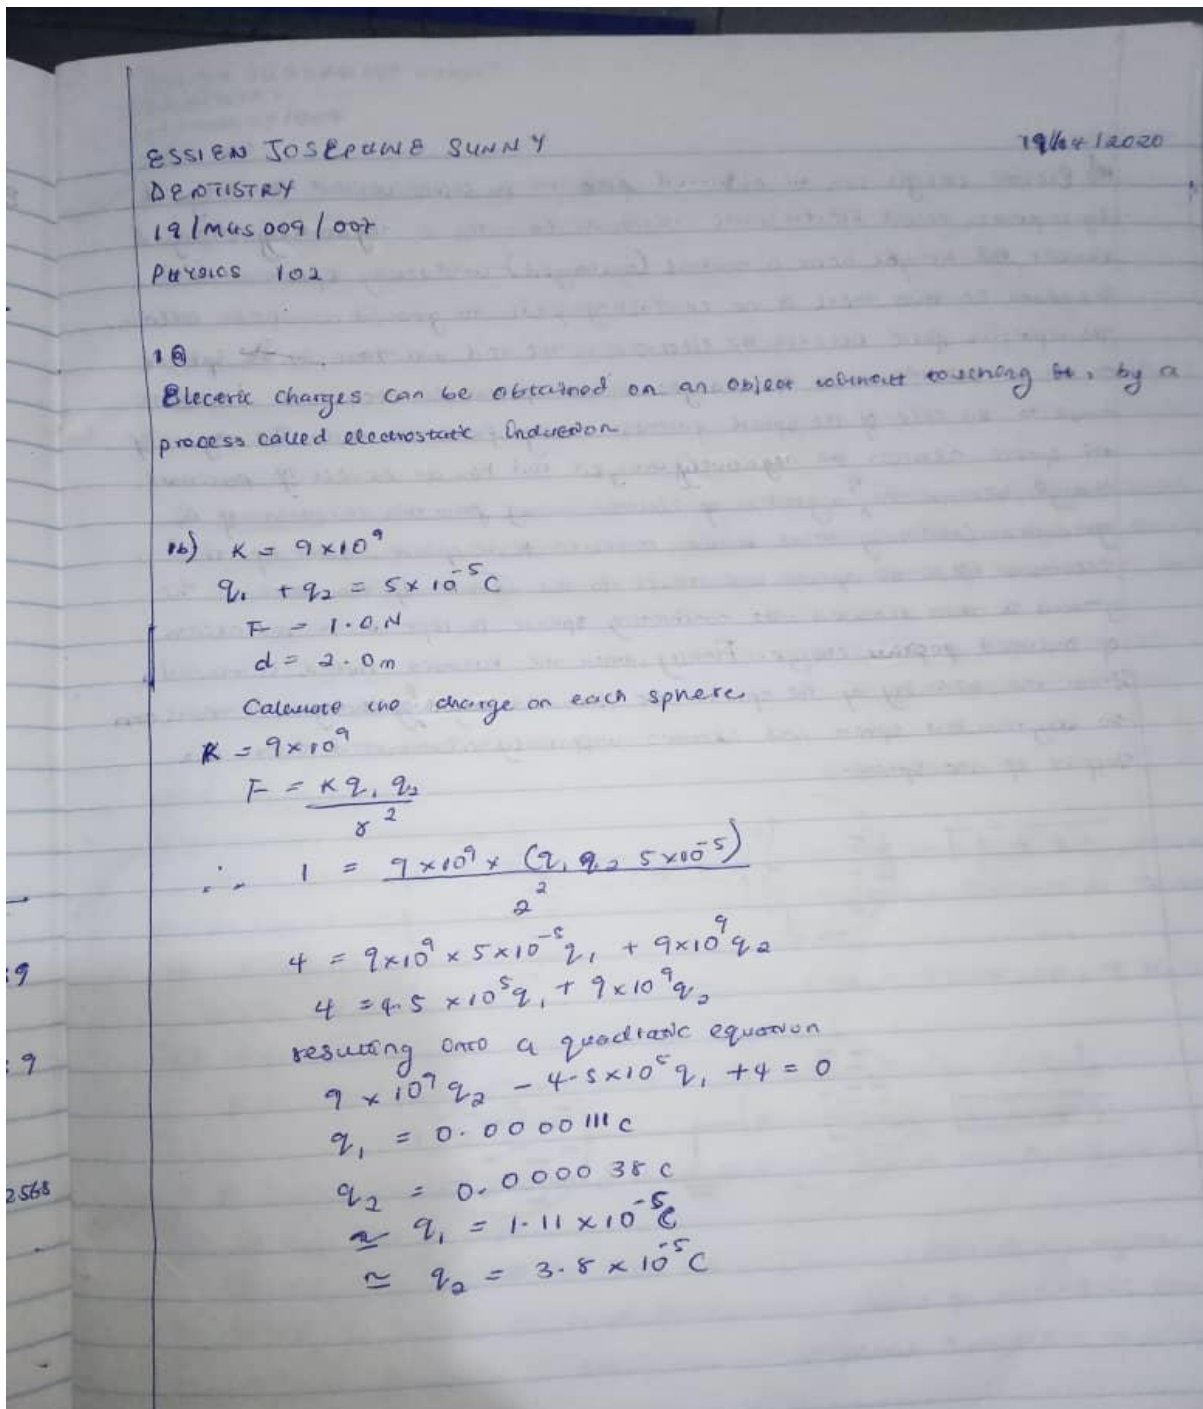 ESSIEN JOSEPHINE SUNNY
19/04/2020
DENTISTRY
19/MHS009/007
PHYSICS 102
1a
Electric charges can be obtained on an object without touching it, by a
process called electrostatic induction
1b) K = 9×10⁹
q₁ + q₂ = 5×10⁻⁵C
F = 1.0N
d = 2.0m
Calculate the charge on each sphere
K = 9×10⁹
F = Kq₁q₂
r²
∴ 1 = 9×10⁹ × (q₁ q₂ 5×10⁻⁵)
2²
4 = 9×10⁹ × 5×10⁻⁵q₁ + 9×10⁹q₂
4 = 4.5 ×10⁵q₁ + 9×10⁹q₂
resulting onto a quadratic equation
9 × 10⁹q₂ - 4.5×10⁵q₁ + 4 = 0
q₁ = 0.0000111c
q₂ = 0.000038c
≃ q₁ = 1.11×10⁻⁵C
≃ q₂ = 3.8×10⁻⁵C
9
:9
2568